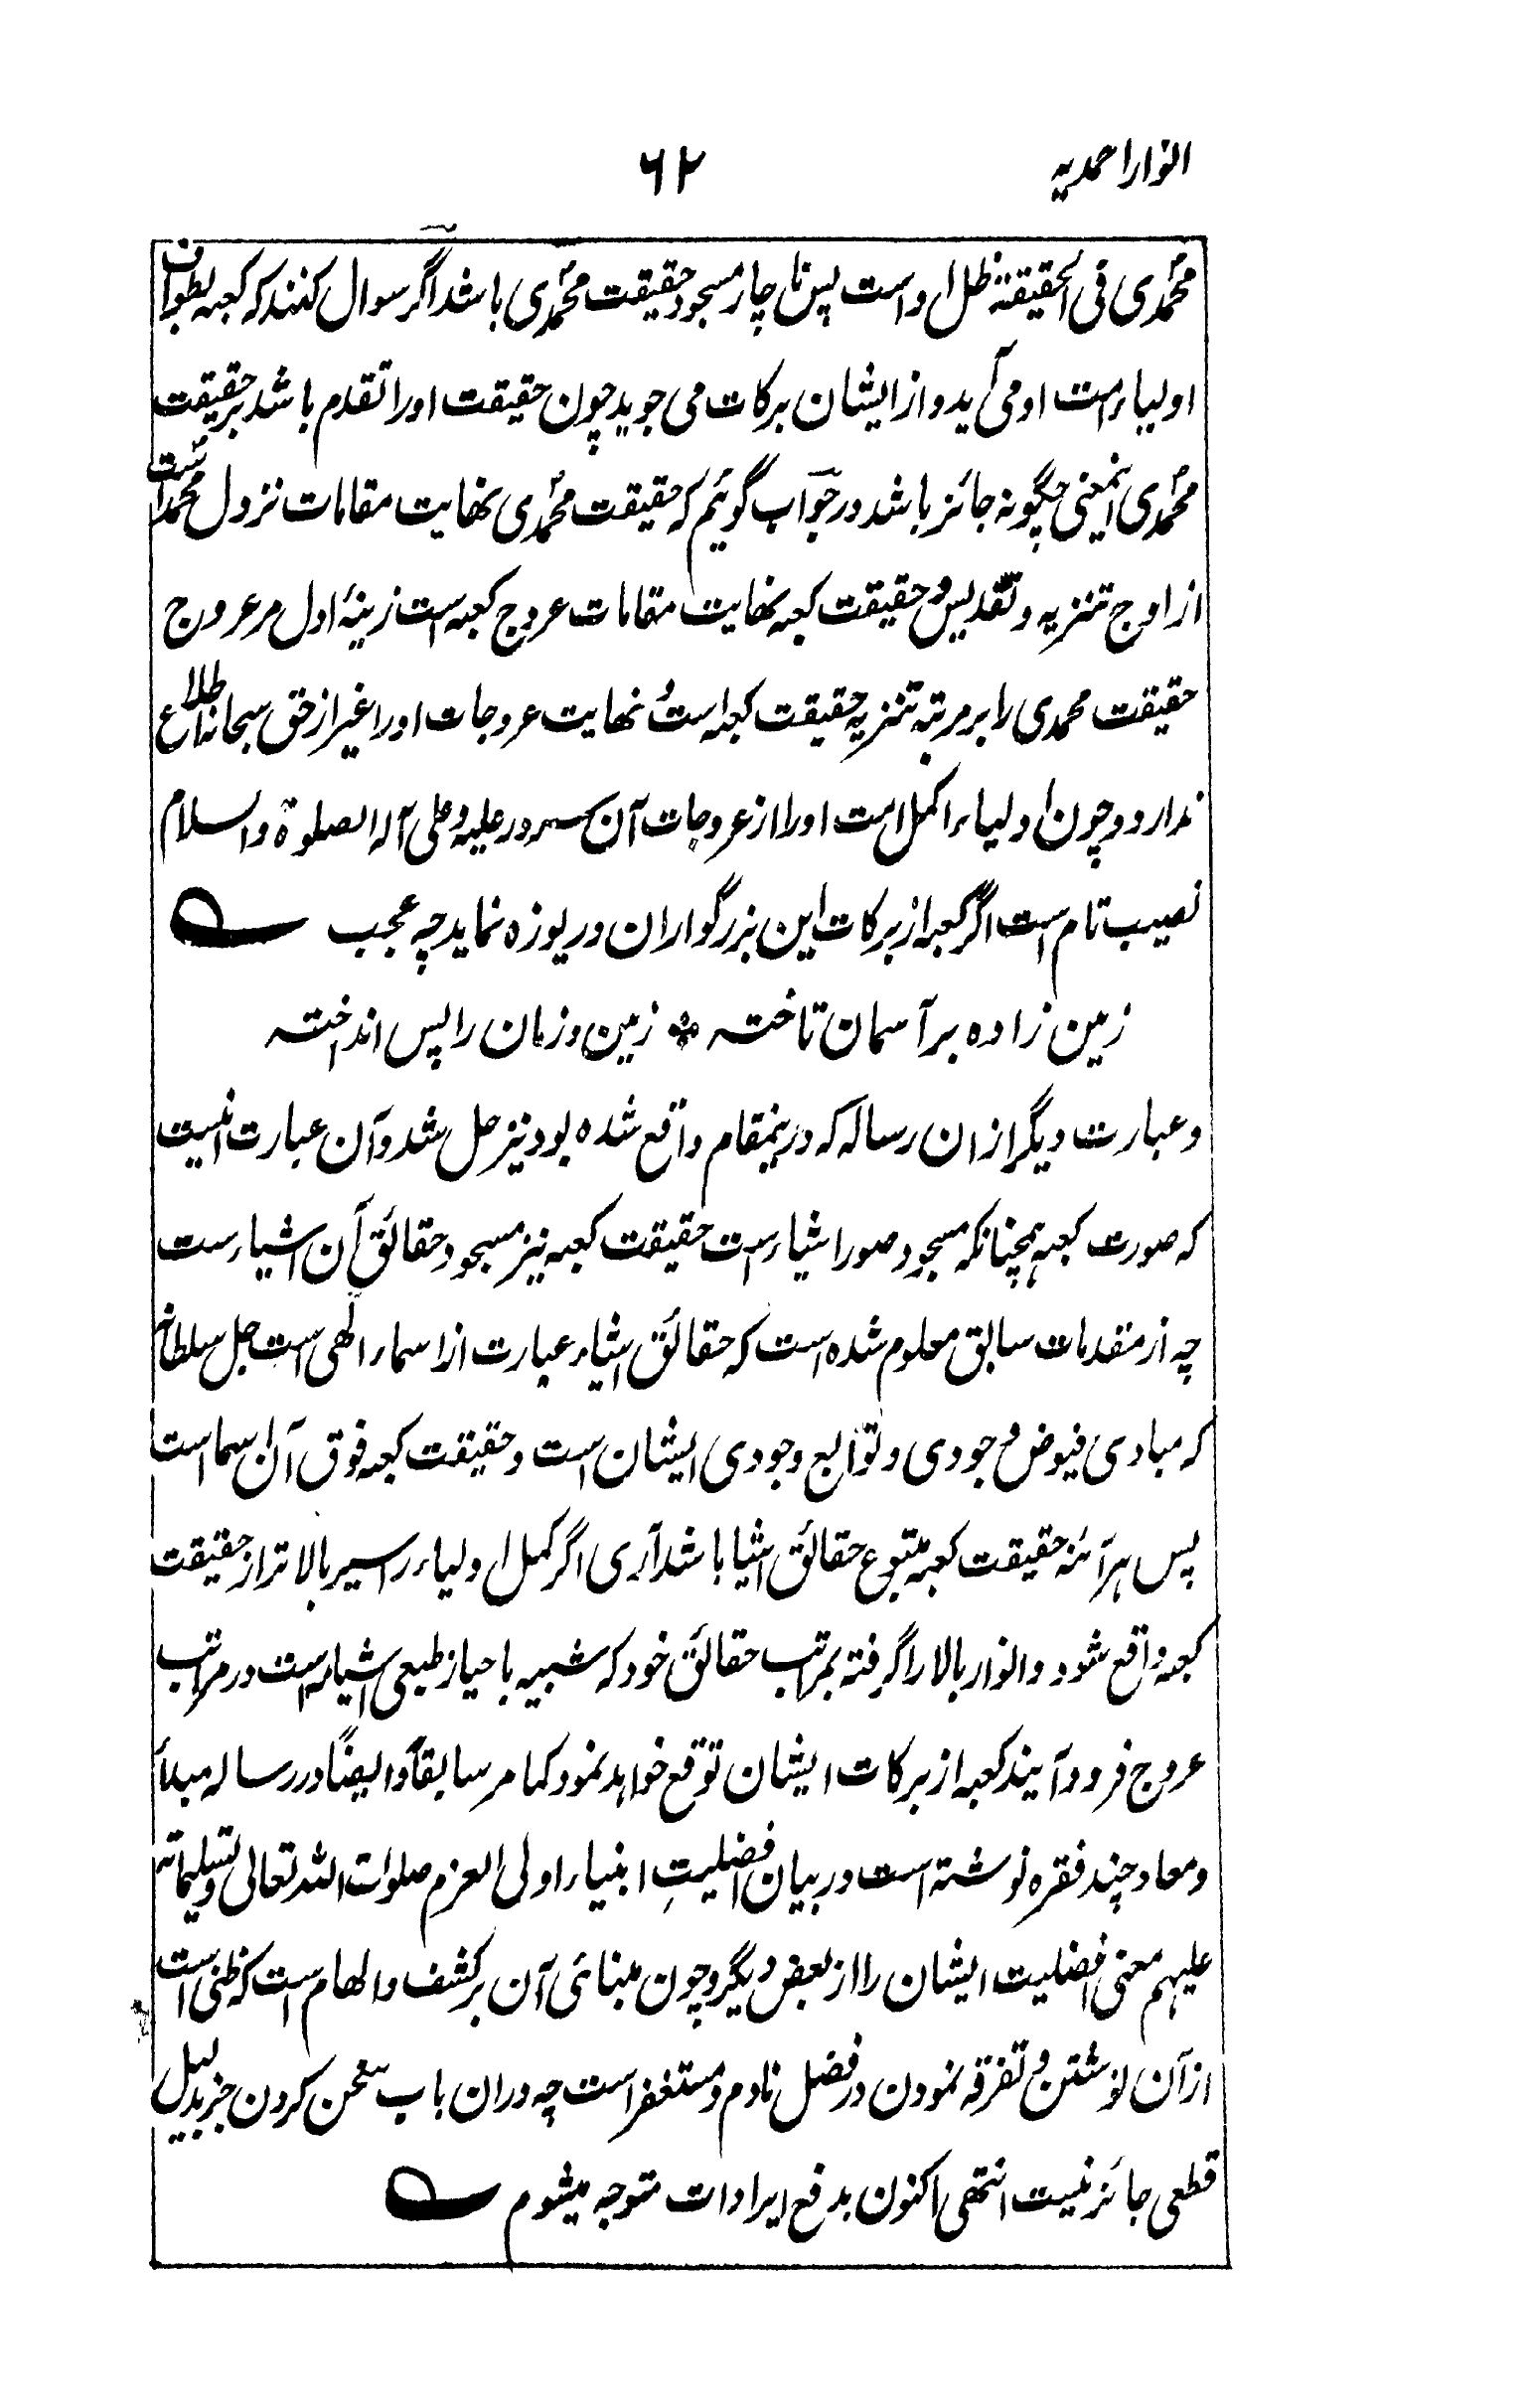 انوار احمدیه ۶۲
محمدی فی الحقیقة ظل اوست پس ناچار مسجود حقیقت محمدی باشد اگر سوال کنند که کعبه بطواف
اولیاء امت او می آید و از ایشان برکات می جوید چون حقیقت او را تقدم باشد بر حقیقت
محمدی اینمعنی چگونه جائز باشد در جواب گوئیم که حقیقت محمدی نهایت مقامات نزول محمد است
از اوج تنزیه و تقدیس و حقیقت کعبه نهایت مقامات عروج کعبه است زینهٔ اول مر عروج
حقیقت محمدی را بر مرتبه تنزیه حقیقت کعبه است و نهایت عروجات او را غیر از حق سبحانه اطلاع
ندارد و چون اولیاء اکمل امت او را از عروجات آن سرور علیه و علی آله الصلوة والسلام
نصیب تام است اگر کعبه از برکات این بزرگواران دریوزه نماید چه عجب
زمین زاده بر آسمان تاخته * زمین و زمان را پس انداخته
و عبارت دیگر ازان رساله که درینمقام واقع شده بود نیز حل شد و آن عبارت اینست
که صورت کعبه همچنانکه مسجود صور اشیاء است حقیقت کعبه نیز مسجود حقائق آن اشیاء است
چه از مقدمات سابق معلوم شده است که حقائق اشیاء عبارت از اسماء الهی است جل سلطانه
که مبادی فیوض وجودی و توابع وجودی ایشان است و حقیقت کعبه فوق آن اسما است
پس هر آئنه حقیقت کعبه متبوع حقائق اشیا باشد آری اگر کمل اولیاء را سیر بالاتر از حقیقت
کعبه واقع شود و انوار بالا را گرفته بمراتب حقائق خود که شبیه باحیاز طبعی اشیاء است در مراتب
عروج فرود آیند کعبه از برکات ایشان توقع خواهد نمود کما مر سابقاً و ایضاً در رساله مبدأ
و معاد چند فقره نوشته است در بیان افضلیتِ انبیاء اولی العزم صلوات الله تعالی و تسلیماته
علیهم معنی افضلیت ایشان را از بعض دیگر و چون مبنائی آن بر کشف و الهام است که ظنی است
از آن نوشتن و تفرقه نمودن در فضل نادم و مستغفر است چه دران باب سخن کردن جز بدلیل
قطعی جائز نیست انتهی اکنون بدفع ایرادات متوجه میشوم